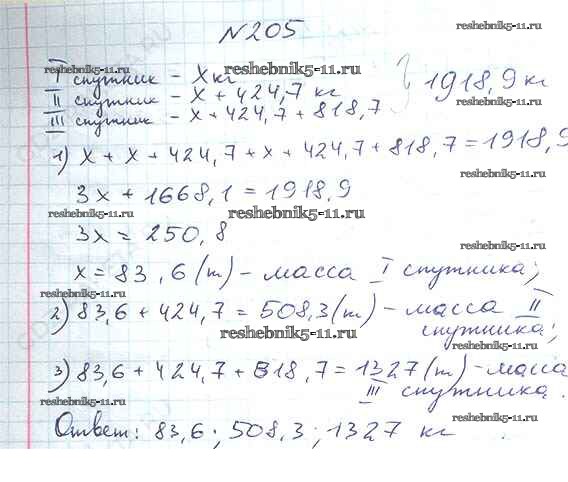 N205
reshebnik5-11.ru
I спутник – x кг
reshebnik5-11.ru
II спутник – x + 424,7 кг
III спутник – x + 424,7 + 818,7
1918,9 кг
reshebnik5-11.ru
1) x + x + 424,7 + x + 424,7 + 818,7 = 1918,9
3x + 1668,1 = 1918,9
reshebnik5-11.ru
reshebnik5-11.ru
3x = 250,8
x = 83,6 (т) – масса I спутника;
reshebnik5-11.ru
reshebnik5-11.ru
2) 83,6 + 424,7 = 508,3 (т) – масса II спутника;
reshebnik5-11.ru
reshebnik5-11.ru
3) 83,6 + 424,7 + 818,7 = 1327 (т) – масса III спутника.
reshebnik5-11.ru
reshebnik5-11.ru
Ответ: 83,6; 508,3; 1327 кг.
reshebnik5-11.ru